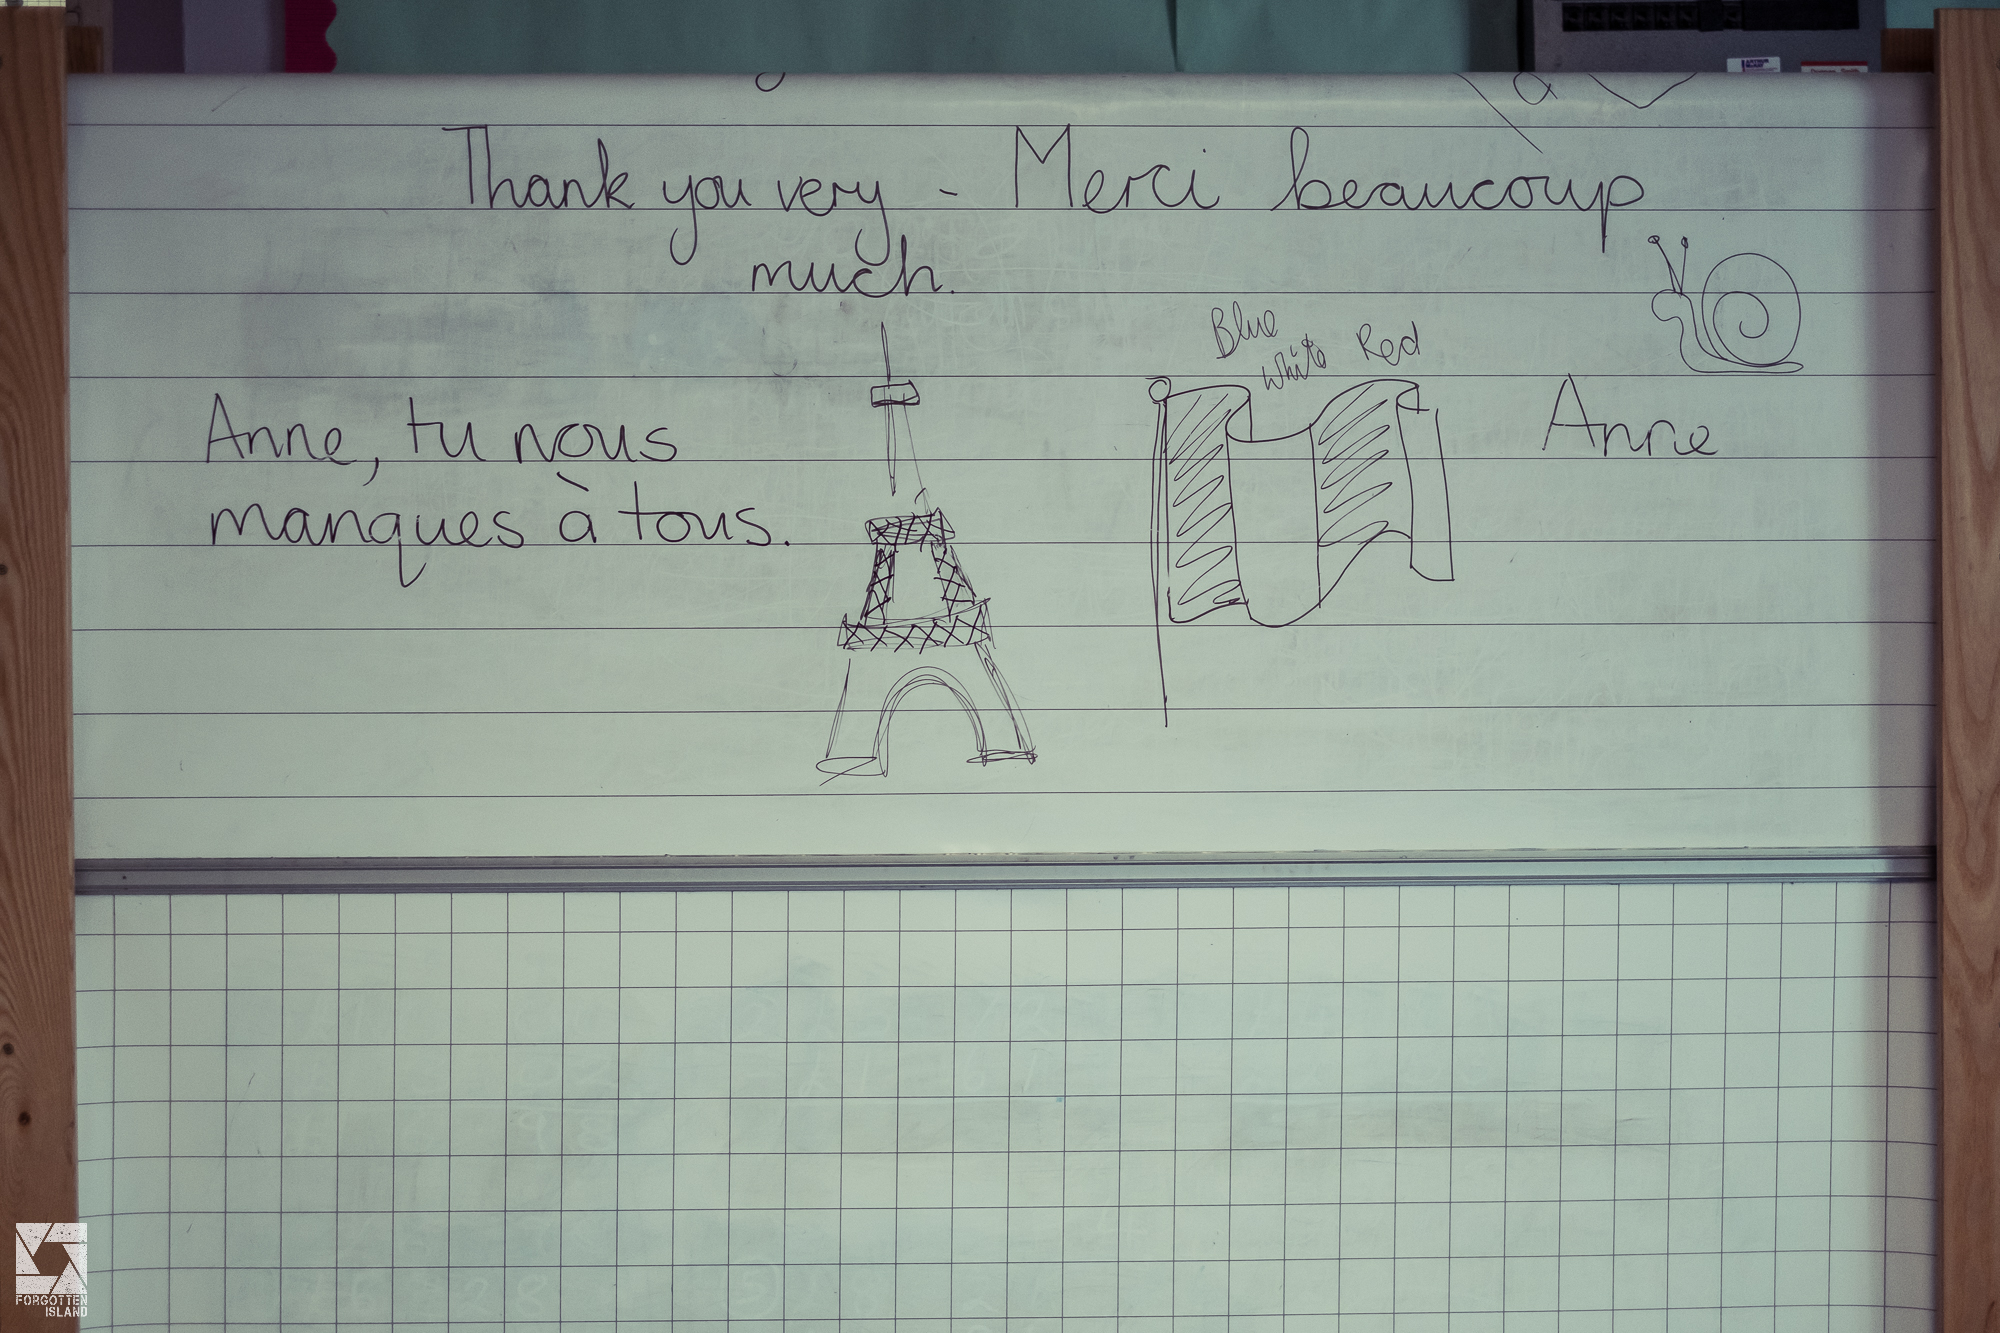 Thank you very - Merci beaucoup
much.
Blue White Red
Anne, tu nous
manques à tous.
Anne
FORGOTTEN
ISLAND